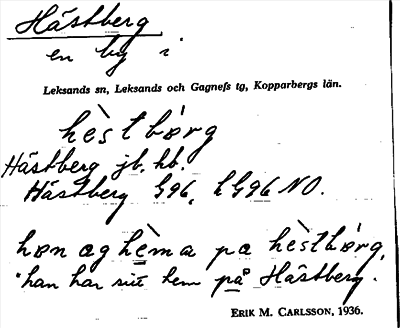 Hästberg
en by i
Leksands sn, Leksands och Gagnefs tg, Kopparbergs län.
hèstbórg
Hästberg jb. hb.
Hästberg G96, LG96 NO.
hon ag hèma pa hèstbórg,
"han har sitt hem på Hästberg.
ERIK M. CARLSSON, 1936.